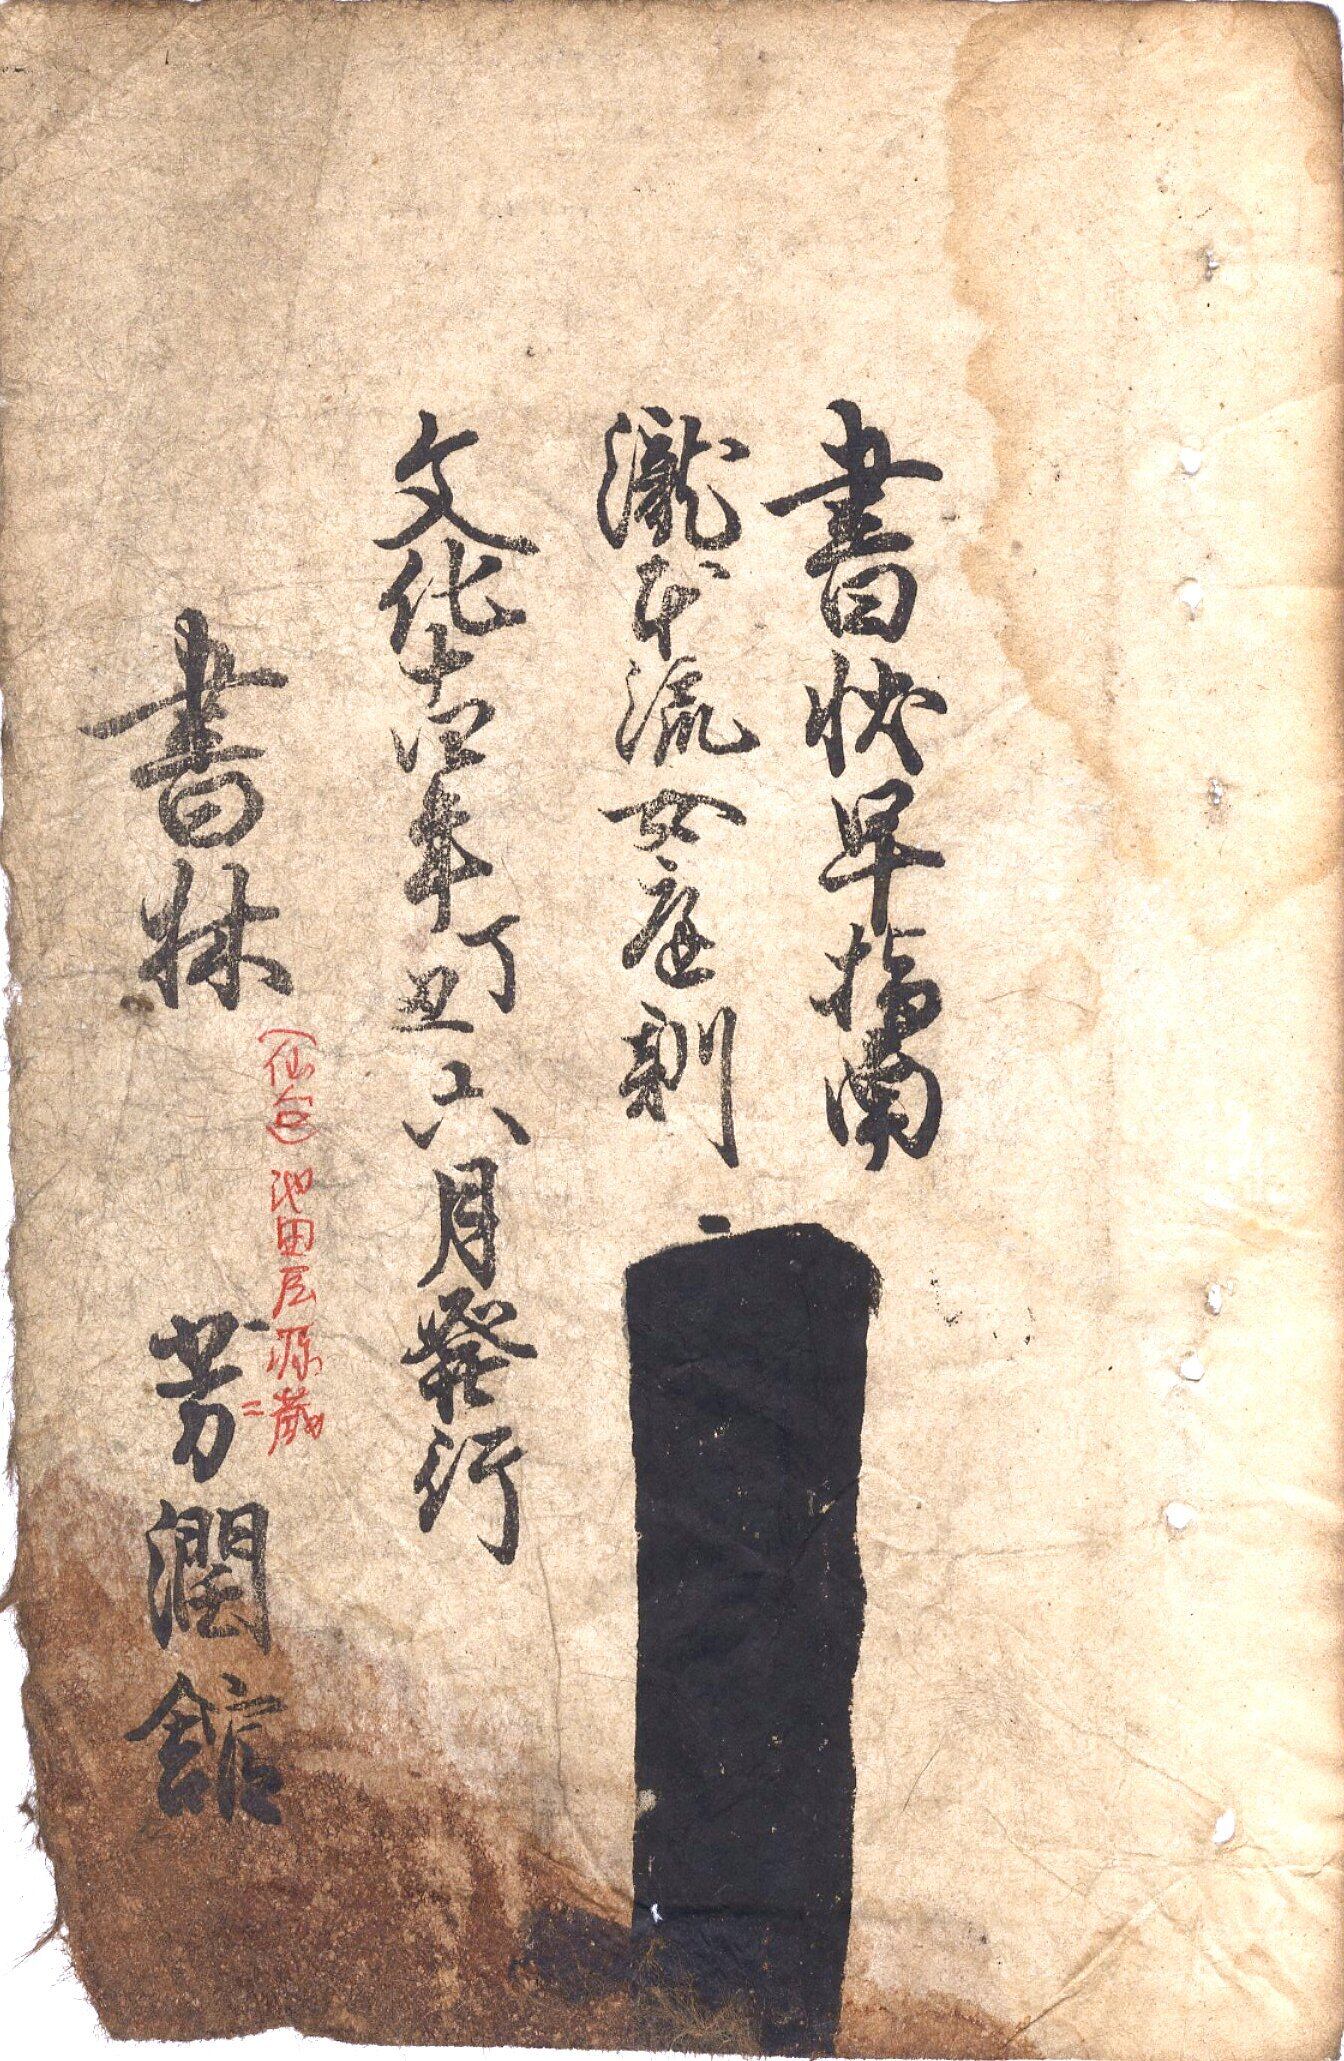 書状早指南
瀧本流女庭訓
文化十四年丁丑六月發行
書林 芳潤舘
(仙台)池田屋源蔵